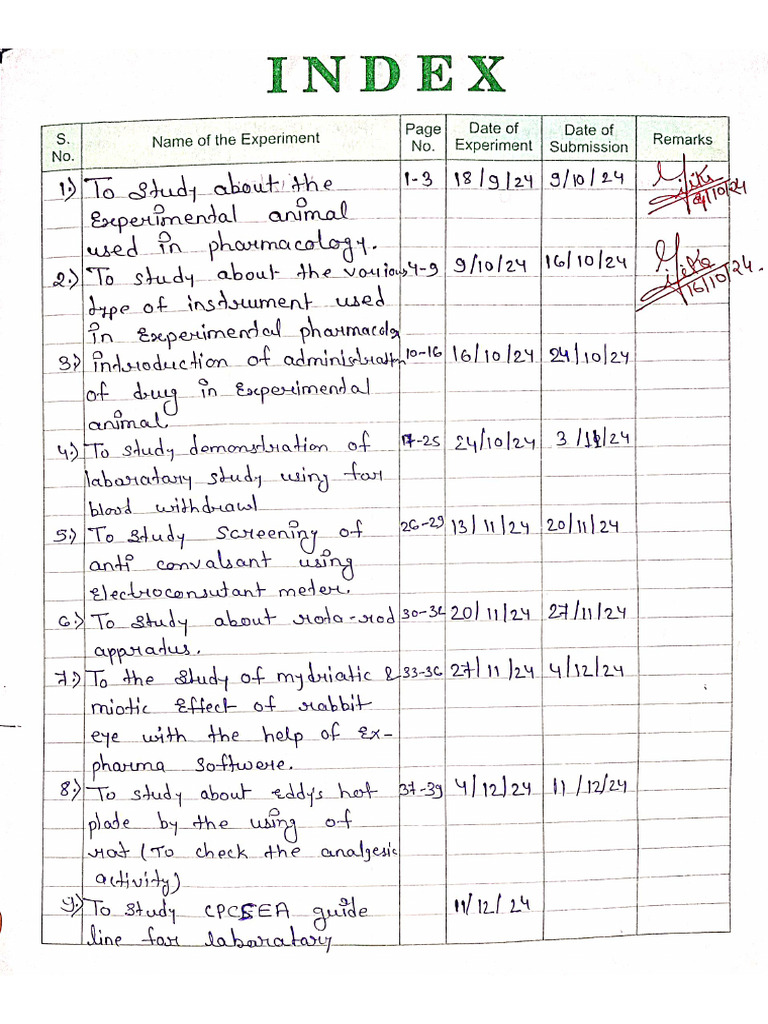 INDEX
S. No. Name of the Experiment Page No. Date of Experiment Date of Submission Remarks
1.) To study about the 1-3 18/9/24 9/10/24
Experimental animal 24/10/24
used in pharmacology.
2.) To study about the various 4-9 9/10/24 16/10/24
type of instrument used 16/10/24.
in Experimental pharmacolog
3.) introduction of administration 10-16 16/10/24 24/10/24
of drug in Experimental
animal.
4.) To study demonstration of 17-25 24/10/24 3/11/24
labaratary study using far
blood withdrawl
5.) To study screening of 26-29 13/11/24 20/11/24
anti convalsant using
Electroconsutant meter.
6.) To study about rota-rod 30-32 20/11/24 27/11/24
appratus.
7.) To the study of mydriatic & 33-36 27/11/24 4/12/24
miotic Effect of rabbit
eye with the help of Ex-
pharma softwere.
8.) To study about eddys hot 37-39 4/12/24 11/12/24
plate by the using of
rat (To check the analgesic
activity)
9.) To study CPCSEA guide 11/12/24
line far labaratary